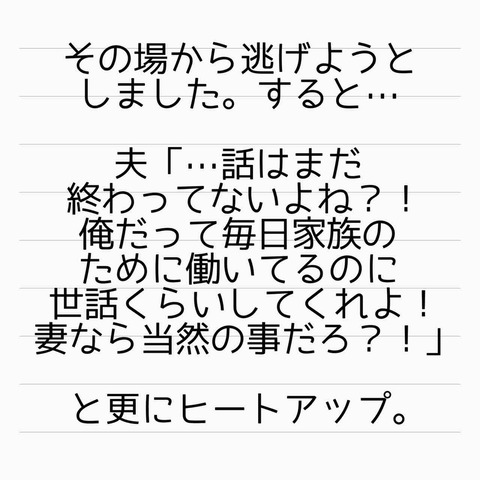 その場から逃げようと
しました。すると…
夫「…話はまだ
終わってないよね？！
俺だって毎日家族の
ために働いてるのに
世話くらいしてくれよ！
妻なら当然の事だろ？！」
と更にヒートアップ。